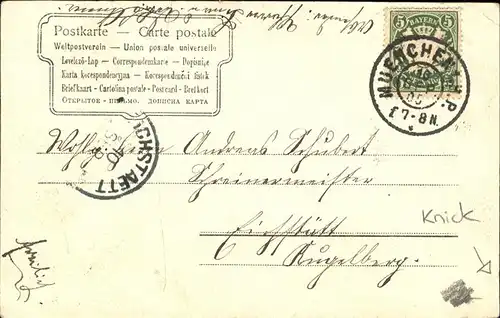 Postkarte — Carte postale
Weltpostverein — Union postale universelle
Levelező-Lap — Correspondenzkarte — Dopisnice
Karta korespondencyjna — Korespondenční lístek
Briefkaart - Cartolina postale - Postcard - Brefkort
ОТКРЫТОЕ - ПИСЬМО. ДОПИСНА КАРТА
5 BAYERN 5
MUENCHEN
7-8 N.
EICHSTAETT
Wohlgeb. Herrn Andreas Schubert
Schreinermeister
Knick
Eichstätt
Kugelberg.